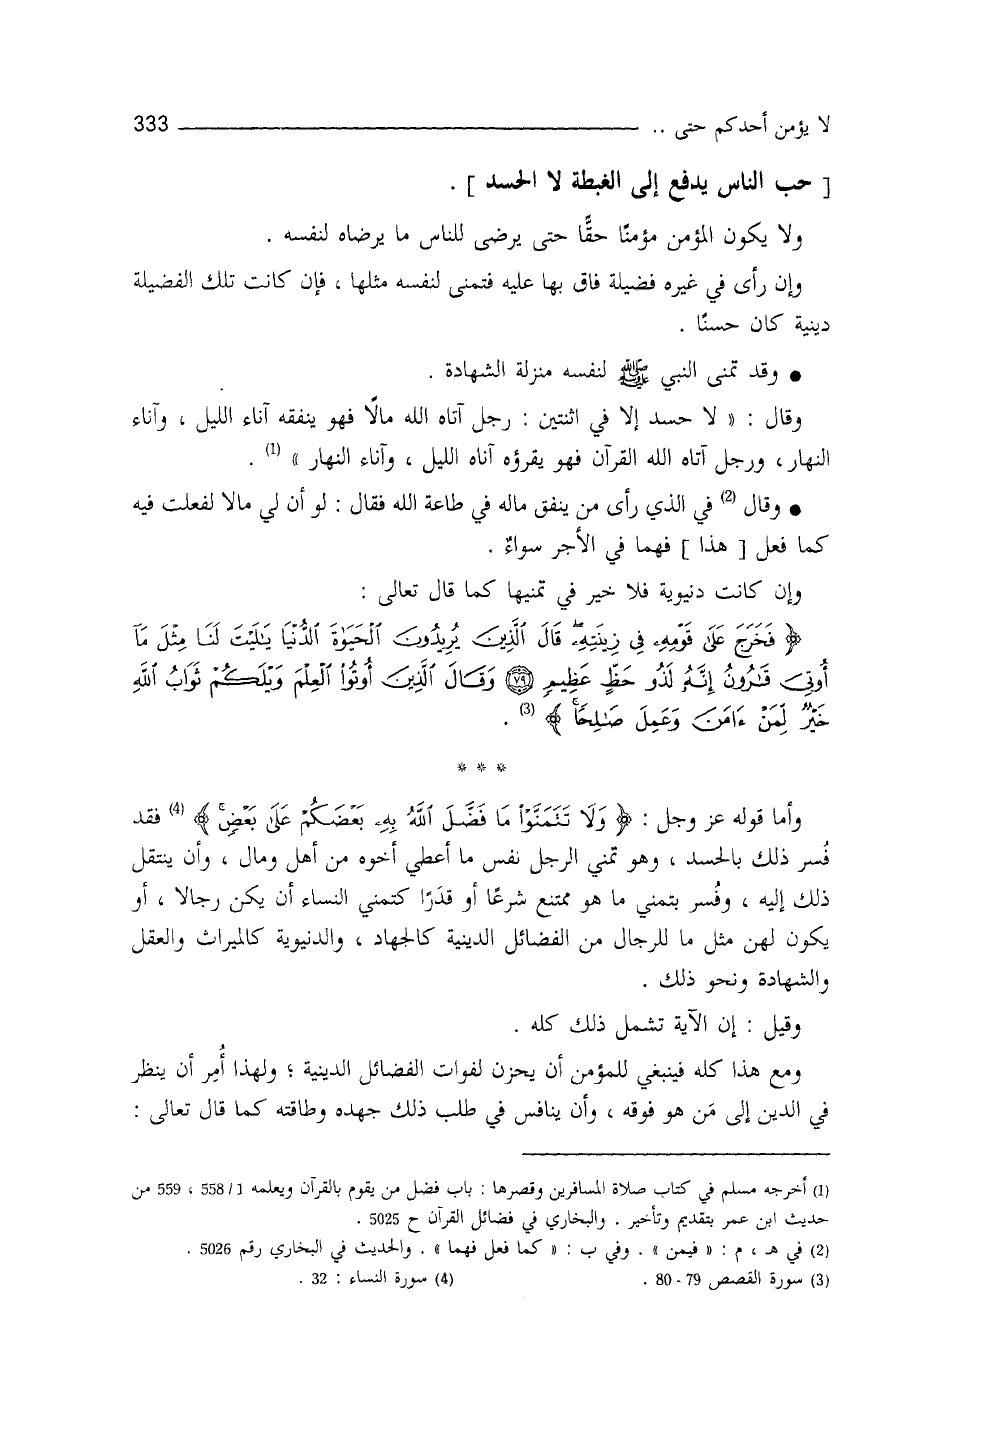 لا يؤمن أحدكم حتى .. 333
[ حب الناس يدفع إلى الغبطة لا الحسد ] .
ولا يكون المؤمن مؤمنًا حقًّا حتى يرضى للناس ما يرضاه لنفسه .
وإن رأى في غيره فضيلة فاق بها عليه فتمنى لنفسه مثلها ، فإن كانت تلك الفضيلة
دينية كان حسنًا .
● وقد تمنى النبي ﷺ لنفسه منزلة الشهادة .
وقال : « لا حسد إلا في اثنتين : رجل آتاه الله مالًا فهو ينفقه آناء الليل ، وآناء
النهار ، ورجل آتاه الله القرآن فهو يقرؤه آناه الليل ، وآناء النهار » (1) .
● وقال (2) في الذي رأى من ينفق ماله في طاعة الله فقال : لو أن لي مالا لفعلت فيه
كما فعل [ هذا ] فهما في الأجر سواءٌ .
وإن كانت دنيوية فلا خير في تمنيها كما قال تعالى :
﴿ فَخَرَجَ عَلَىٰ قَوْمِهِۦ فِى زِينَتِهِۦۖ قَالَ ٱلَّذِينَ يُرِيدُونَ ٱلْحَيَوٰةَ ٱلدُّنْيَا يَٰلَيْتَ لَنَا مِثْلَ مَآ
أُوتِىَ قَٰرُونُ إِنَّهُۥ لَذُو حَظٍّ عَظِيمٍ ٧٩ وَقَالَ ٱلَّذِينَ أُوتُوا۟ ٱلْعِلْمَ وَيْلَكُمْ ثَوَابُ ٱللَّهِ
خَيْرٌ لِّمَنْ ءَامَنَ وَعَمِلَ صَٰلِحًاۚ ﴾ (3) .
* * *
وأما قوله عز وجل : ﴿ وَلَا تَتَمَنَّوْا۟ مَا فَضَّلَ ٱللَّهُ بِهِۦ بَعْضَكُمْ عَلَىٰ بَعْضٍۚ ﴾ (4) فقد
فُسر ذلك بالحسد ، وهو تمني الرجل نفس ما أعطي أخوه من أهل ومال ، وأن ينتقل
ذلك إليه ، وفُسر بتمني ما هو ممتنع شرعًا أو قدَرًا كتمني النساء أن يكن رجالا ، أو
يكون لهن مثل ما للرجال من الفضائل الدينية كالجهاد ، والدنيوية كالميراث والعقل
والشهادة ونحو ذلك .
وقيل : إن الآية تشمل ذلك كله .
ومع هذا كله فينبغي للمؤمن أن يحزن لفوات الفضائل الدينية ؛ ولهذا أُمِر أن ينظر
في الدين إلى مَن هو فوقه ، وأن ينافس في طلب ذلك جهده وطاقته كما قال تعالى :
(1) أخرجه مسلم في كتاب صلاة المسافرين وقصرها : باب فضل من يقوم بالقرآن ويعلمه 1/ 558 ، 559 من
حديث ابن عمر بتقديم وتأخير . والبخاري في فضائل القرآن ح 5025 .
(2) في هـ ، م : « فيمن » . وفي ب : « كما فعل فهما » . والحديث في البخاري رقم 5026 .
(3) سورة القصص 79 - 80 . (4) سورة النساء : 32 .